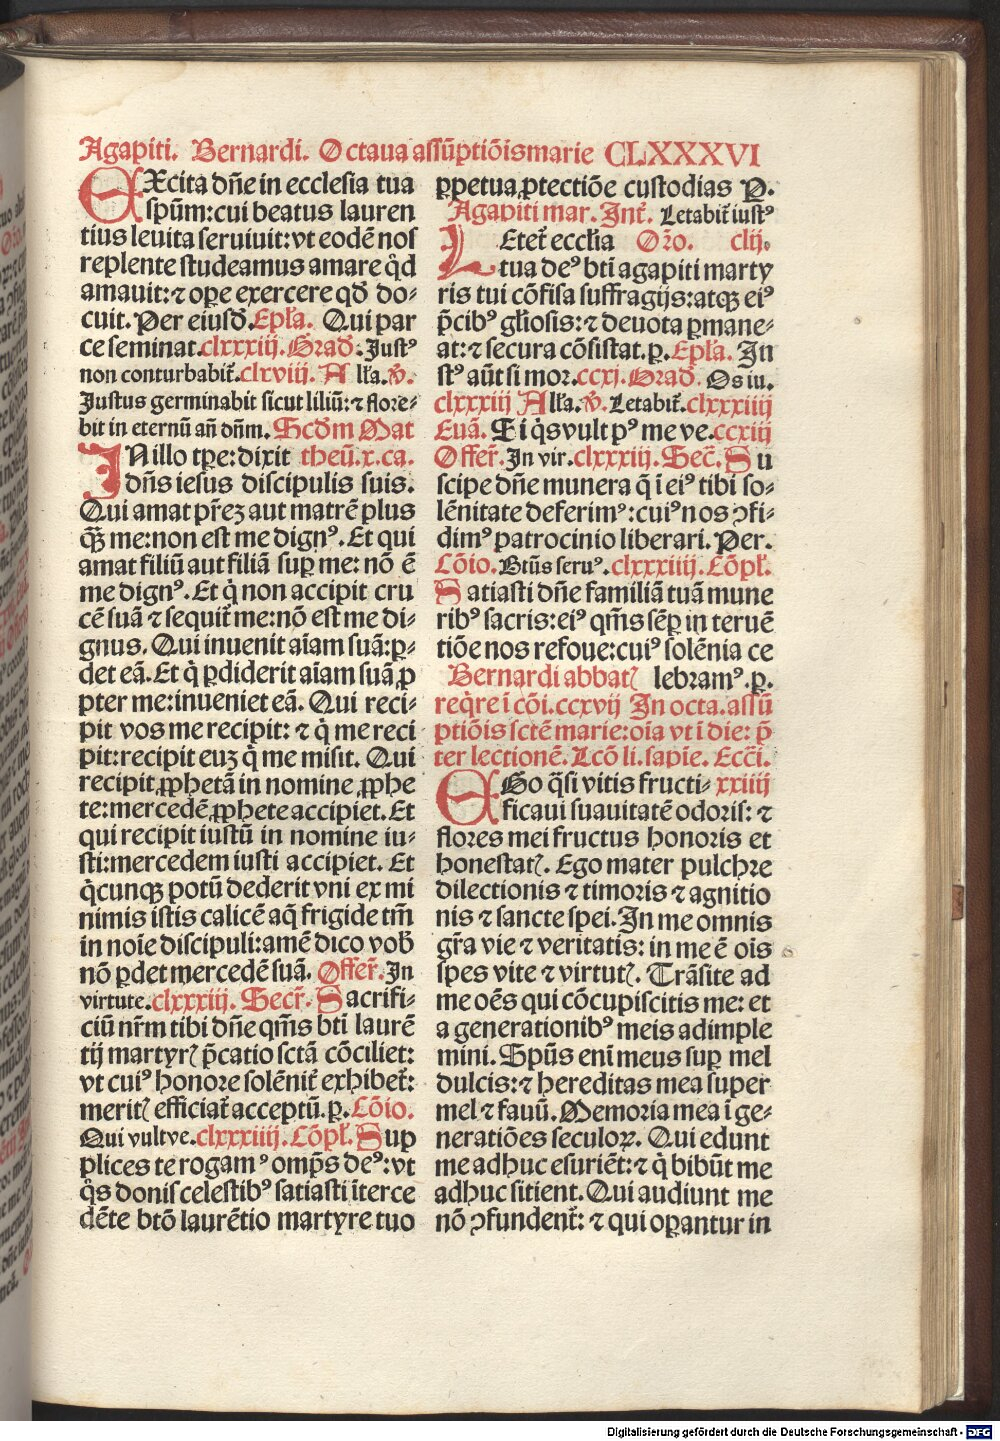 Agapiti. Bernardi. Octaua assūptiōis marie CLXXXVI
EXcita dn̄e in ecclesia tua
spūm:cui beatus lauren
tius leuita seruiuit:vt eodē nos
replente studeamus amare q̇d
amauit:⁊ oꝑe exercere qd̄ do⸗
cuit. Per eiusd̄. Ep̄la. Qui par
ce seminat.clxxxiij. Grad̄. Justꝰ
non conturbabit̄.clxviij. A lľa. v̄.
Justus germinabit sicut liliū:⁊ flore⸗
bit in eternū añ dn̄m. Scd̄m Mat
IN illo tꝑe:dixit theū.x.ca.
dn̄s iesus discipulis suis.
Qui amat pr̄eꝫ aut matrē plus
q̄ꝫ me:non est me dignꝰ. Et qui
amat filiū aut filiā suꝑ me: nō ē
me dignꝰ. Et q̇ non accipit cru
cē suā ⁊ sequit̄ me:nō est me di⸗
gnus. Qui inuenit aīam suā:ꝑ⸗
det eā. Et q̇ ꝑdiderit aīam suā ꝓ
pter me:inueniet eā. Qui reci⸗
pit vos me recipit: ⁊ q̇ me reci
pit:recipit euꝫ q̇ me misit. Qui
recipit ꝓphetā in nomine ꝓphe
te:mercedē ꝓphete accipiet. Et
qui recipit iustū in nomine iu⸗
sti:mercedem iusti accipiet. Et
q̇cunqꝫ potū dederit vni ex mi
nimis istis calicē aq̄ frigide tm̄
in noīe discipuli:amē dico vob̄
nō ꝑdet mercedē suā. Offer̄. In
virtute.clxxxiij. Secr̄. Sacrifi⸗
ciū nr̄m tibi dn̄e qm̄s bt̄i laurē
tij martyrꝭ p̄catio sctā cōciliet:
vt cuiꝰ honore solēnit̄ exhibet̄:
meritꝭ efficiat̄ acceptū.ꝑ. Cōio.
Qui vult ve.clxxxiiij. Cōpl̄. Sup
plices te rogamꝰ om̄ps deꝰ:vt
q̇s donis celestibꝰ satiasti ītercē
dēte btō laurētio martyre tuo
ꝑpetua ꝓtectiōe custodias P.
Agapiti mar. Int̄. Letabit̄ iustꝰ
LEtet̄ eccľia Oro. clij.
tua deꝰ bt̄i agapiti marty
ris tui cōfisa suffragijs:atqꝫ eiꝰ
p̄cibꝰ gľiosis:⁊ deuota ꝑmane⸗
at:⁊ secura cōsistat.ꝑ. Ep̄la. In
stꝰ aūt si mor.ccxj. Grad̄. Os iu.
clxxxiij Alľa. v̄. Letabit̄.clxxxiiij
Euā. Si q̇s vult pꝰ me ve.ccxiij
Offer̄. In vir.clxxxiij. Sec̄. Su
scipe dn̄e munera q̄ ī eiꝰ tibi so⸗
lēnitate deferimꝰ:cuiꝰ nos ꝯfi⸗
dimꝰ patrocinio liberari. Per.
Cōio. Btūs seruꝰ. clxxxiiij. Cōpl̄.
Satiasti dn̄e familiā tuā mune
ribꝰ sacris:eiꝰ qm̄s sēꝑ in teruē
tiōe nos refoue:cuiꝰ solēnia ce
Bernardi abbatꝭ lebramꝰ.ꝑ.
req̇re ī cōi.ccxvij In octa.assū
ptiōis sctē marie:oīa vt ī die: p̄
ter lectionē. Lcō li. sapīe. Ecc̄i.
EGo q̄si vitis fructi⸗ xxiiij
ficaui suauitatē odoris: ⁊
flores mei fructus honoris et
honestatꝭ. Ego mater pulchre
dilectionis ⁊ timoris ⁊ agnitio
nis ⁊ sancte spei. In me omnis
gr̄a vie ⁊ veritatis: in me ē oīs
spes vite ⁊ virtutꝭ. Trāsite ad
me oēs qui cōcupiscitis me: et
a generationibꝰ meis adimple
mini. Spūs enī meus suꝑ mel
dulcis:⁊ hereditas mea super
mel ⁊ fauū. Memoria mea ī ge⸗
neratiōes seculoꝝ. Qui edunt
me adhuc esuriēt:⁊ q̇ bibūt me
adhuc sitient. Qui audiunt me
nō ꝯfundent̄: ⁊ qui oꝑantur in
Digitalisierung gefördert durch die Deutsche Forschungsgemeinschaft - DFG